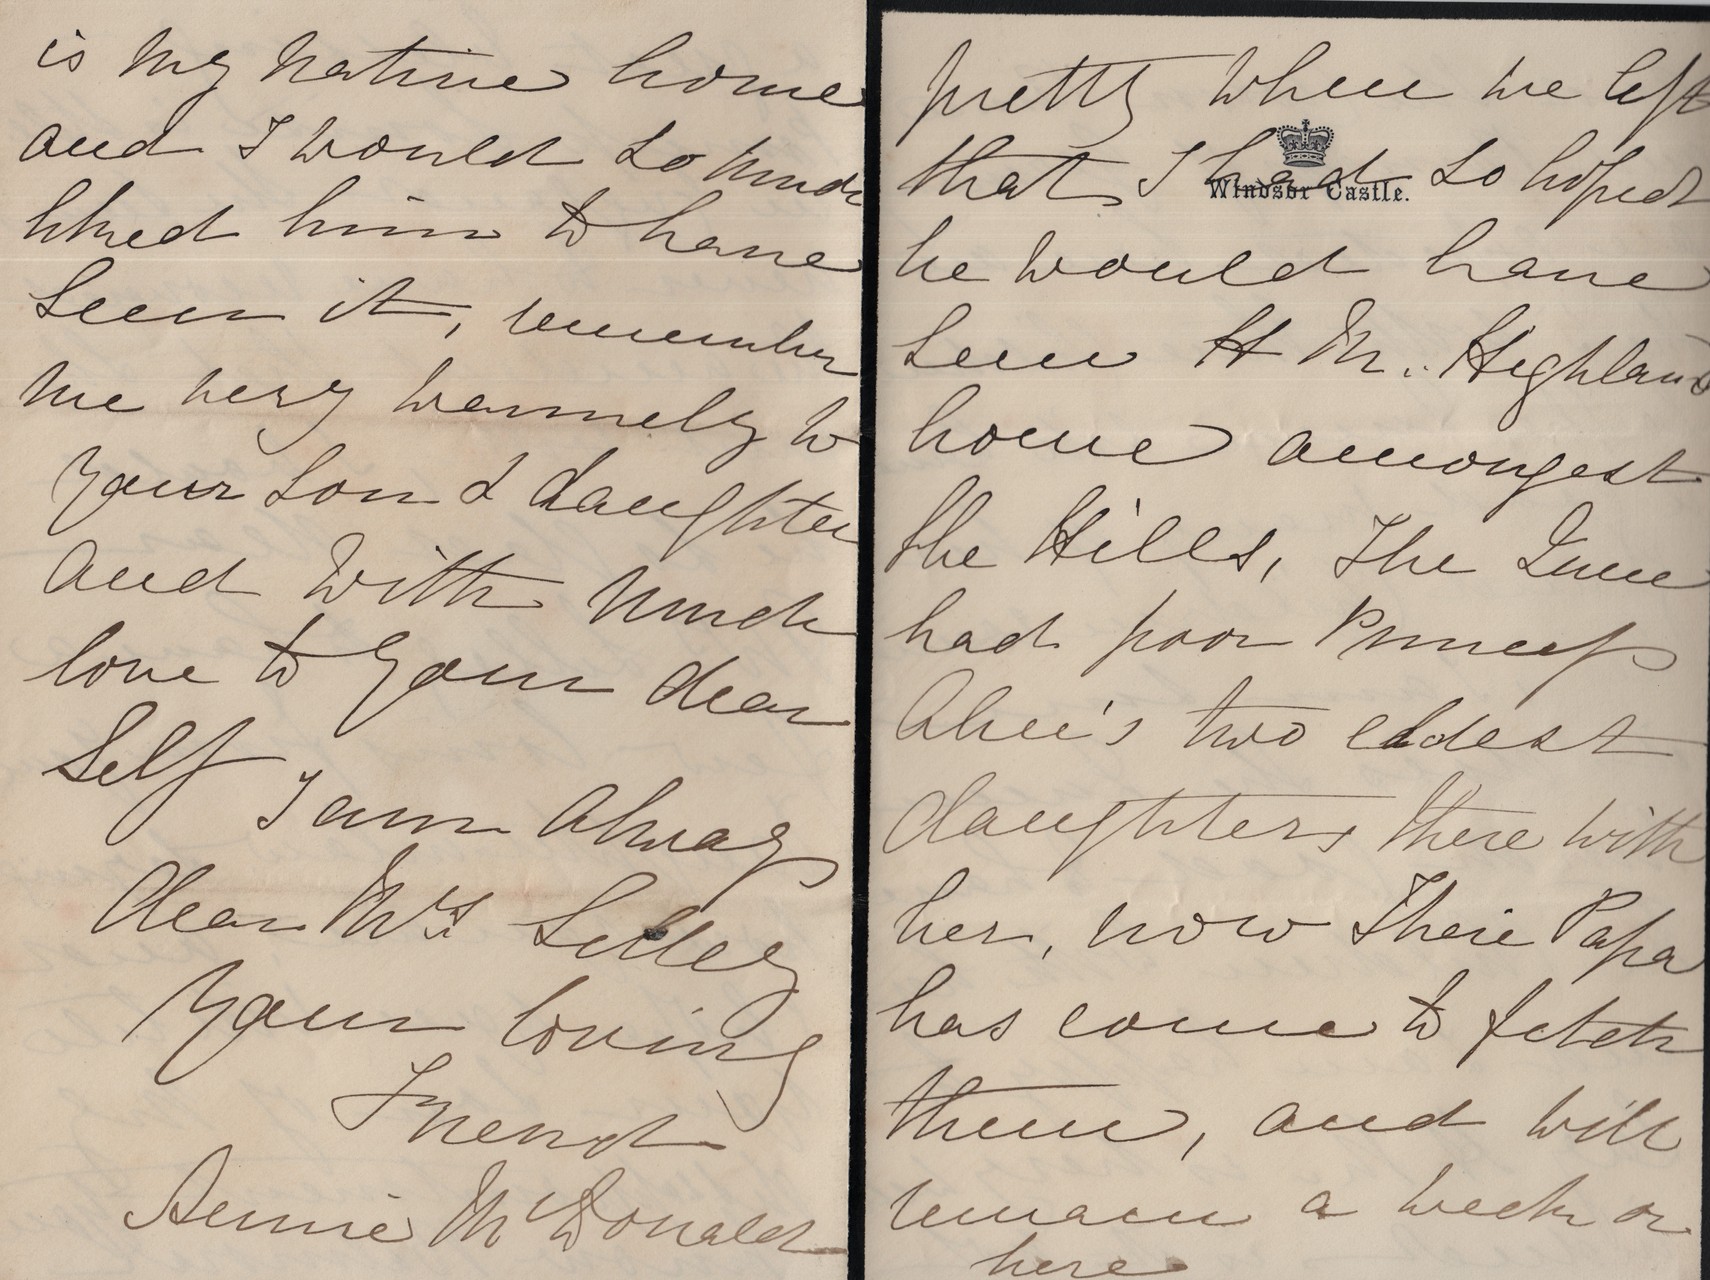 is my native home
and I would so much
liked him to have
seen it, remember
me very warmely to
your son & daughter
and with much
love to your dear
self I am always
dear Mrs Lilley
your loving
Friend
Annie McDonald
pretty when we left
Windsor Castle.
that I had so hoped
he would have
seen H M. Highland
home amongest
the Hills, The Queen
had poor Princess
Alice's two eldest
daughters there with
her, now Their Papa
has come to fetch
them, and will
remain a week or
here